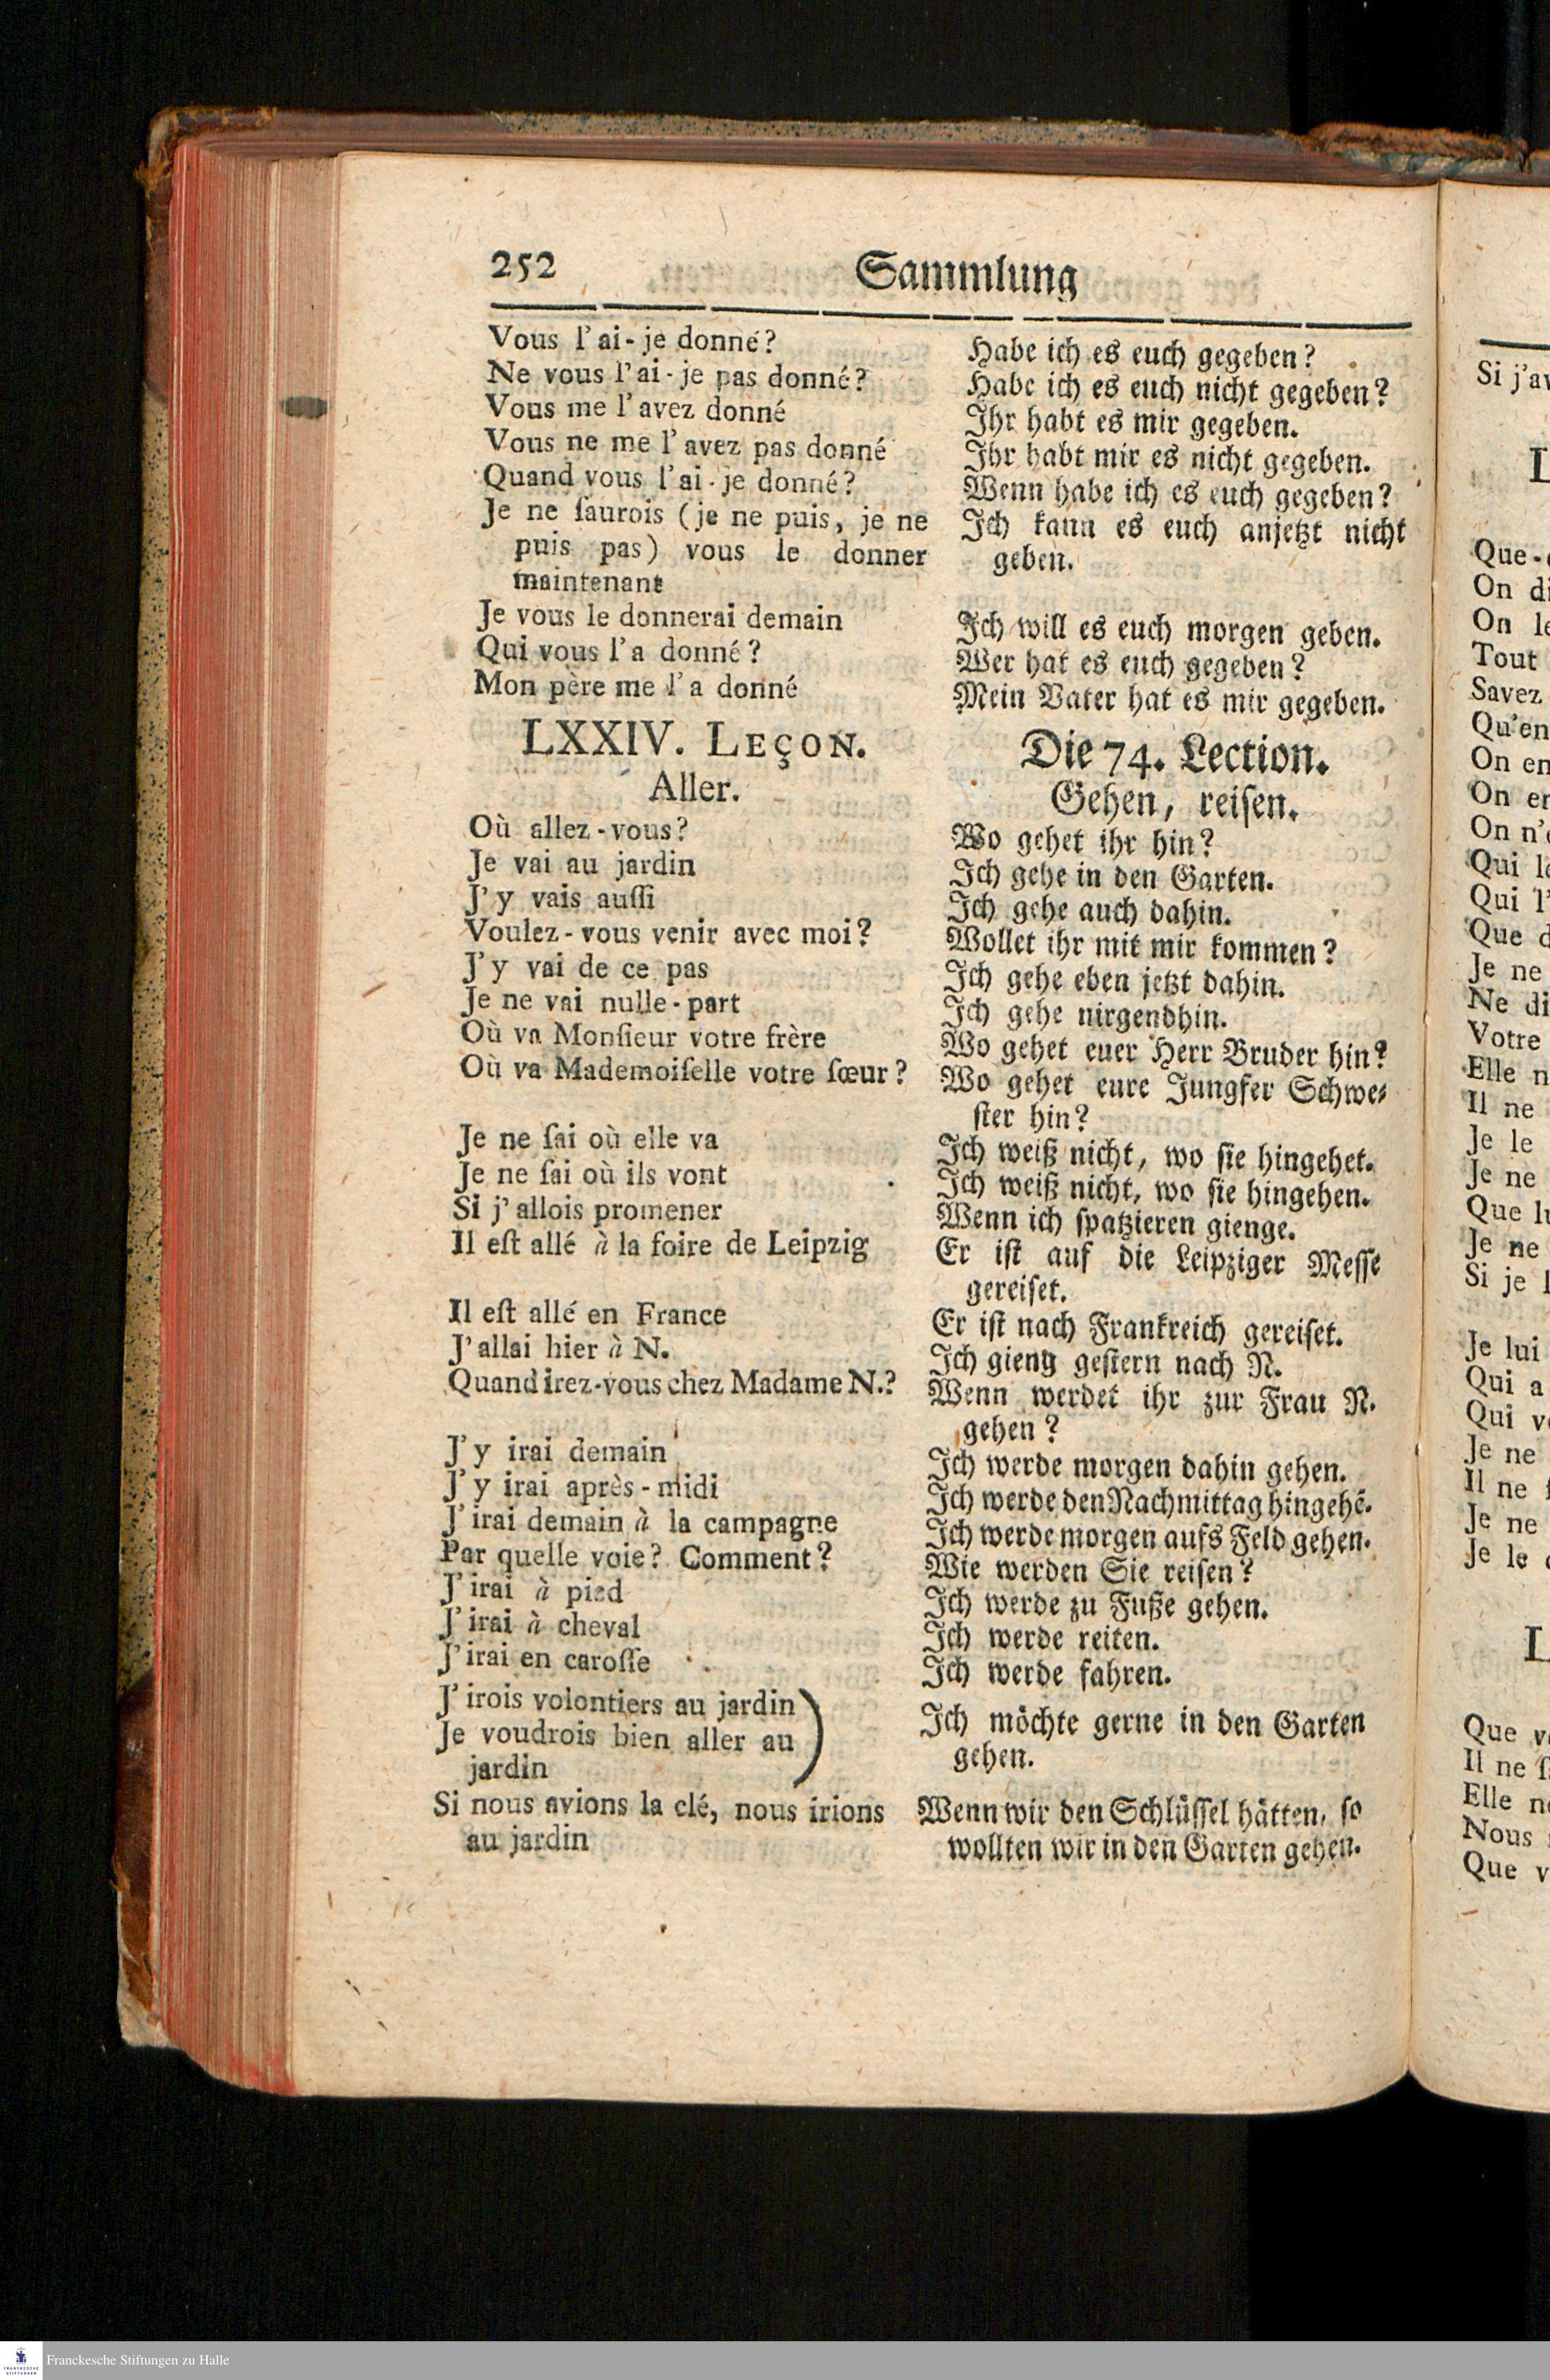 252
Sammlung
Vous l'ai-je donné?
Ne vous l'ai-je pas donné?
Vous me l'avez donné
Vous ne me l'avez pas donné
Quand vous l'ai-je donné?
Je ne ſaurois (je ne puis, je ne
puis pas) vous le donner
maintenant
Je vous le donnerai demain
Qui vous l'a donné?
Mon père me l'a donné
LXXIV. LEÇON.
Aller.
Où allez-vous?
Je vai au jardin
J'y vais auſſi
Voulez-vous venir avec moi?
J'y vai de ce pas
Je ne vai nulle-part
Où va Monſieur votre frère
Où va Mademoiſelle votre ſœur?
Je ne ſai où elle va
Je ne ſai où ils vont
Si j'allois promener
Il eſt allé à la foire de Leipzig
Il eſt allé en France
J'allai hier à N.
Quand irez-vous chez Madame N.?
J'y irai demain
J'y irai après-midi
J'irai demain à la campagne
Par quelle voie? Comment?
J'irai à pied
J'irai à cheval
J'irai en caroſſe
J'irois volontiers au jardin)
Je voudrois bien aller au
jardin
Si nous avions la clé, nous irions
au jardin
Habe ich es euch gegeben?
Habe ich es euch nicht gegeben?
Ihr habt es mir gegeben.
Ihr habt mir es nicht gegeben.
Wenn habe ich es euch gegeben?
Ich kann es euch anjetzt nicht
geben.
Ich will es euch morgen geben.
Wer hat es euch gegeben?
Mein Vater hat es mir gegeben.
Die 74. Lection.
Gehen, reiſen.
Wo gehet ihr hin?
Ich gehe in den Garten.
Ich gehe auch dahin.
Wollet ihr mit mir kommen?
Ich gehe eben jetzt dahin.
Ich gehe nirgendhin.
Wo gehet euer Herr Bruder hin?
Wo gehet eure Jungfer Schwe⸗
ſter hin?
Ich weiß nicht, wo ſie hingehet.
Ich weiß nicht, wo ſie hingehen.
Wenn ich ſpatzieren gienge.
Er iſt auf die Leipziger Meſſe
gereiſet.
Er iſt nach Frankreich gereiſet.
Ich gieng geſtern nach N.
Wenn werdet ihr zur Frau N.
gehen?
Ich werde morgen dahin gehen.
Ich werde den Nachmittag hingehē.
Ich werde morgen aufs Feld gehen.
Wie werden Sie reiſen?
Ich werde zu Fuße gehen.
Ich werde reiten.
Ich werde fahren.
Ich möchte gerne in den Garten
gehen.
Wenn wir den Schlüſſel hätten, ſo
wollten wir in den Garten gehen.
Si j'av
L
Que-
On di
On le
Tout
Savez
Qu'en
On en
On en
On n'
Qui l
Qui l'
Que d
Je ne
Ne di
Votre
Elle n
Il ne
Je le
Je ne
Que lu
Je ne
Si je l
Je lui
Qui a
Qui v
Je ne
Il ne
Je ne
Je le
L
Que v
Il ne ſ
Elle n
Nous
Que v
FRANCKESCHE
STIFTUNGEN
Franckesche Stiftungen zu Halle